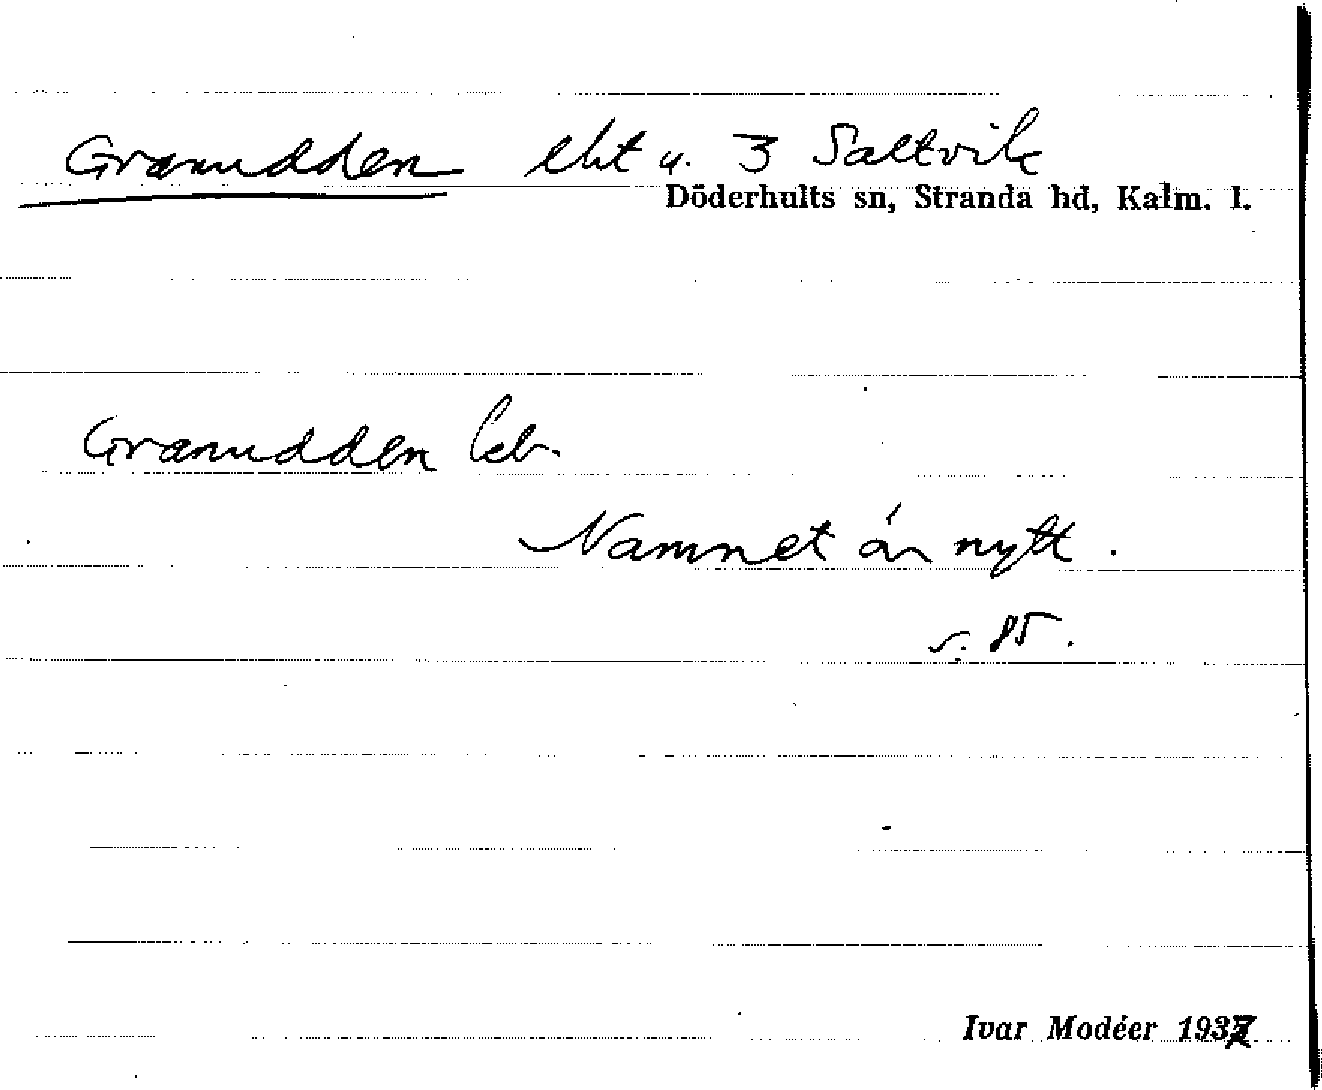 Granudden lht u. 3 Saltvik
Döderhults sn, Stranda hd, Kalm. l.
Granudden
Namnet är nytt.
s. 85.
Ivar Modéer 1937